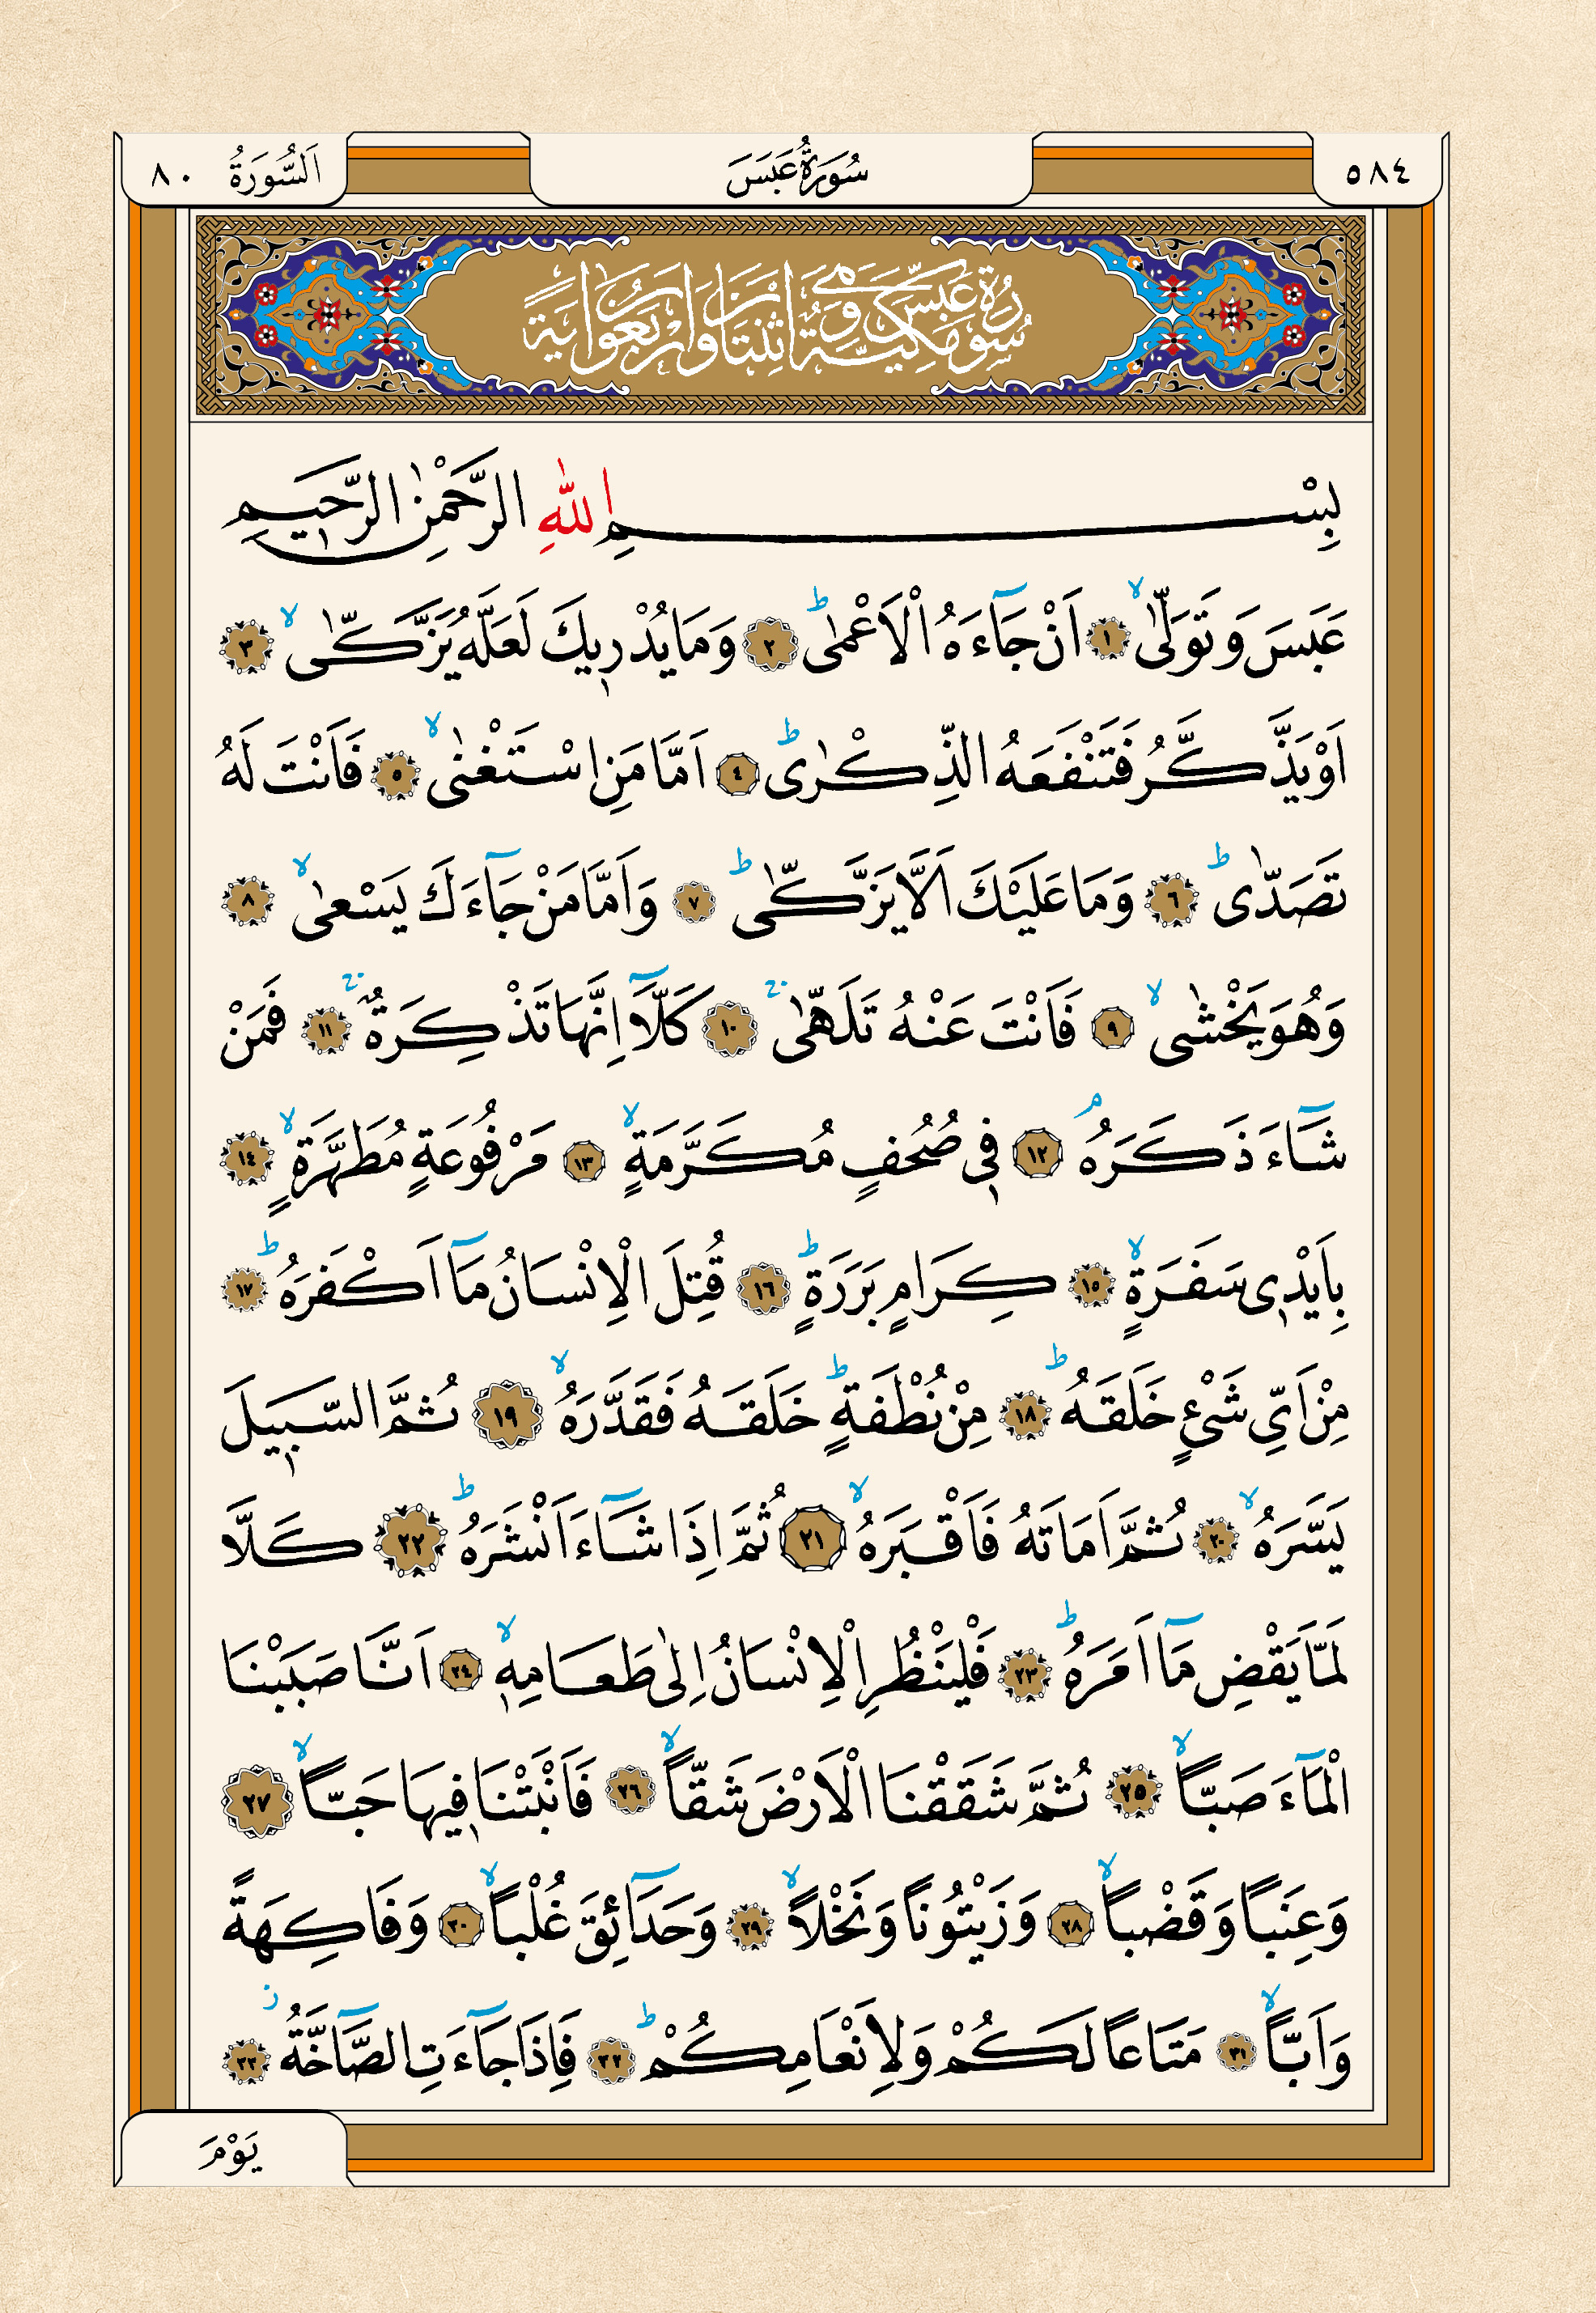 ٥٨٤
سُورَةُ عَبَسَ
اَلسُّورَةُ ٨٠
سُورَةُ عَبَسَ مَكِّيَّةٌ وَهِيَ اثْنَتَانِ وَاَرْبَعُونَ اٰيَةً
بِسْمِ اللّٰهِ الرَّحْمٰنِ الرَّحٖيمِ
عَبَسَ وَتَوَلّٰىۙ ١ اَنْ جَٓاءَهُ الْاَعْمٰىۜ ٢ وَمَا يُدْرٖيكَ لَعَلَّهُ يَزَّكّٰىۙ ٣
اَوْ يَذَّكَّرُ فَتَنْفَعَهُ الذِّكْرٰىۜ ٤ اَمَّا مَنِ اسْتَغْنٰىۙ ٥ فَاَنْتَ لَهُ
تَصَدّٰىۜ ٦ وَمَا عَلَيْكَ اَلَّا يَزَّكّٰىۜ ٧ وَاَمَّا مَنْ جَٓاءَكَ يَسْعٰىۙ ٨
وَهُوَ يَخْشٰىۙ ٩ فَاَنْتَ عَنْهُ تَلَهّٰىۚ ١٠ كَلَّٓا اِنَّهَا تَذْكِرَةٌۚ ١١ فَمَنْ
شَٓاءَ ذَكَرَهُۢ ١٢ فٖي صُحُفٍ مُكَرَّمَةٍۙ ١٣ مَرْفُوعَةٍ مُطَهَّرَةٍۙ ١٤
بِاَيْدٖي سَفَرَةٍۙ ١٥ كِرَامٍ بَرَرَةٍۜ ١٦ قُتِلَ الْاِنْسَانُ مَٓا اَكْفَرَهُۜ ١٧
مِنْ اَيِّ شَيْءٍ خَلَقَهُۜ ١٨ مِنْ نُطْفَةٍۜ خَلَقَهُ فَقَدَّرَهُۙ ١٩ ثُمَّ السَّبٖيلَ
يَسَّرَهُۙ ٢٠ ثُمَّ اَمَاتَهُ فَاَقْبَرَهُۙ ٢١ ثُمَّ اِذَا شَٓاءَ اَنْشَرَهُۜ ٢٢ كَلَّا
لَمَّا يَقْضِ مَٓا اَمَرَهُۜ ٢٣ فَلْيَنْظُرِ الْاِنْسَانُ اِلٰى طَعَامِهٖۙ ٢٤ اَنَّا صَبَبْنَا
الْمَٓاءَ صَباًّۙ ٢٥ ثُمَّ شَقَقْنَا الْاَرْضَ شَقاًّۙ ٢٦ فَاَنْبَتْنَا فٖيهَا حَباًّۙ ٢٧
وَعِنَباً وَقَضْباًۙ ٢٨ وَزَيْتُوناً وَنَخْلاًۙ ٢٩ وَحَدَٓائِقَ غُلْباًۙ ٣٠ وَفَاكِهَةً
وَاَباًّۙ ٣١ مَتَاعاً لَكُمْ وَلِاَنْعَامِكُمْۜ ٣٢ فَاِذَا جَٓاءَتِ الصَّٓاخَّةُؗ ٣٣
يَوْمَ